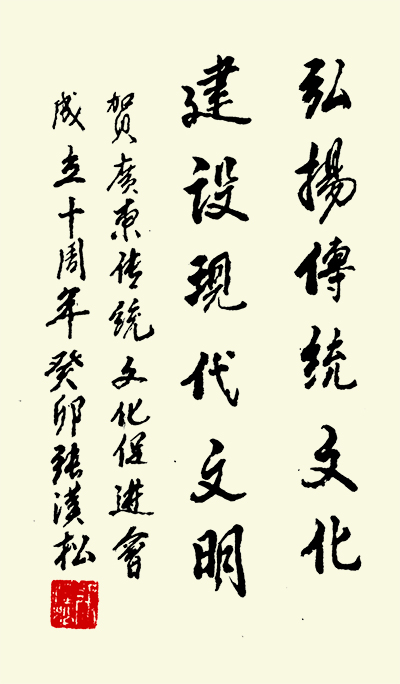 弘揚傳統文化
建设現代文明
賀廣東传統文化促進會
成立十周年癸卯張漢松